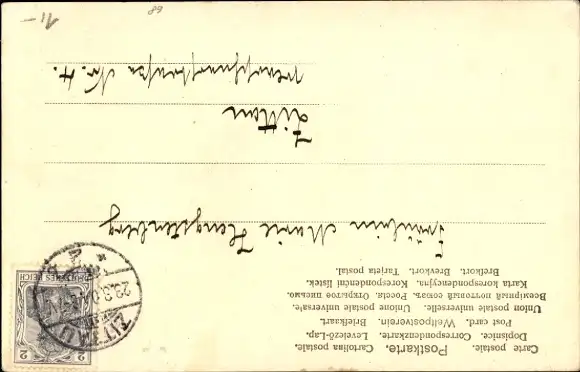 Carte postale. Postkarte. Cartolina postale.
Dopisnice. Correspondenzkarte. Levelező-Lap.
Post card. Weltpostverein. Briefkaart.
Union postale universelle. Unione postale universale.
Всемірный почтовый союзъ. Россія. Открытое письмо.
Karta korespondencyjna. Korespondenční lístek.
Bretkort. Brevkort. Tarjeta postal.
Fräulein Marie Hengstenberg
Zittau
No. 4.
ZITTAU
DEUTSCHES REICH
2 2
68
11-